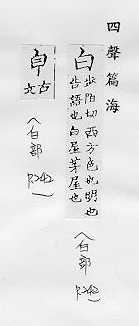 四聲篇海
白 步陌切西方色也明也
告語也白屋茅屋也
〈白部 P.242〉
古文
〈白部 P.242〉